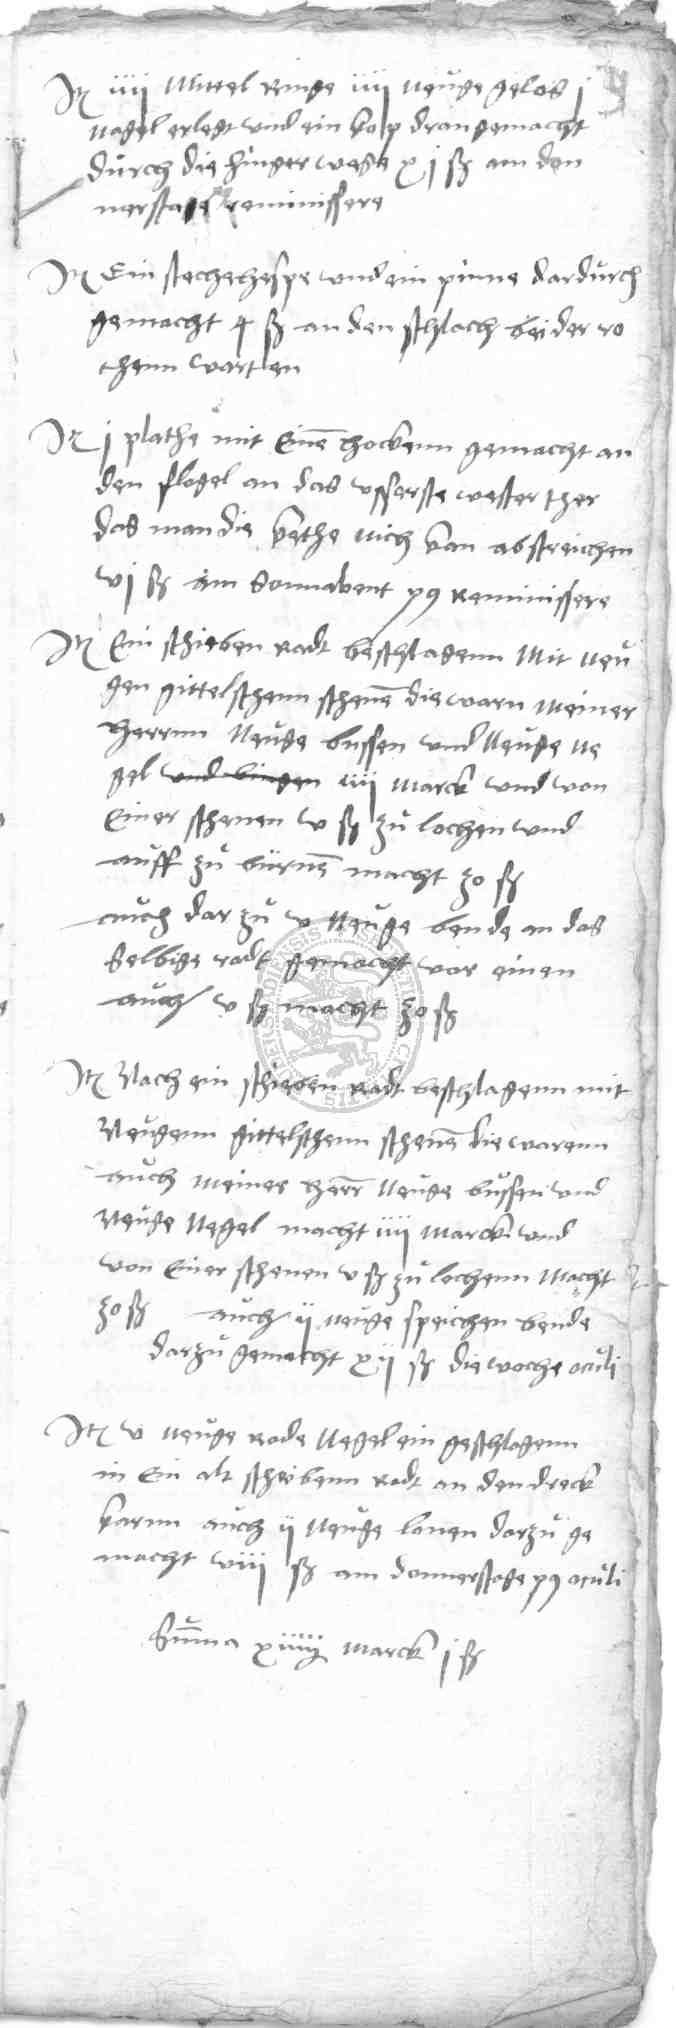 Itz iiij Mittel Ringe iiij neuge gelos j
nagel erlegt und ein kop dran gemacht
durch die hinger wege xj ß am don
nerstage reminissere
Itz Ein stechehespe und ein pinne dardurch
gemacht 4 ß an den schlach bei der ro
thenn warten
Itz j plathe mit Eine hockenn gemacht an
den flogel an das usserste wester ther
das man die kethe nich kan abstreichen
vj ß am Sonnabent p9 Reminissere
Itz Ein schieben Radt beschlagenn Mit neu
gen gittelschenn schene die warn meiner
herrnn Neuge bussen und Neuge Ne
gel und bingen iiij Marck und von
Einer schenen v ß zu lochen und
auff zu burne macht 30 ß
auch dar zu v Neuge bende an das
selbige radt gemacht vor einen
auch v ß macht 30 ß
Itz Nach ein schieben Radt beschlagenn mit
Neugenn gittelschenn schene die warenn
auch meiner herr Neuge bussen und
Neuge Negel macht iiij Marck und
von Einer schenen v ß zu lochenn Macht
30 ß auch ij neuge speichen bende
darzu gemacht xij ß die woche oculi
Itz v neuge Rade Negel ein geschlagenn
in Ein alt scheibenn Radt an den dreck
karnn auch ij Neuge lonen darzu ge
macht viij ß am donnerstage p9 oculi
Summa xiiij Marck j ß